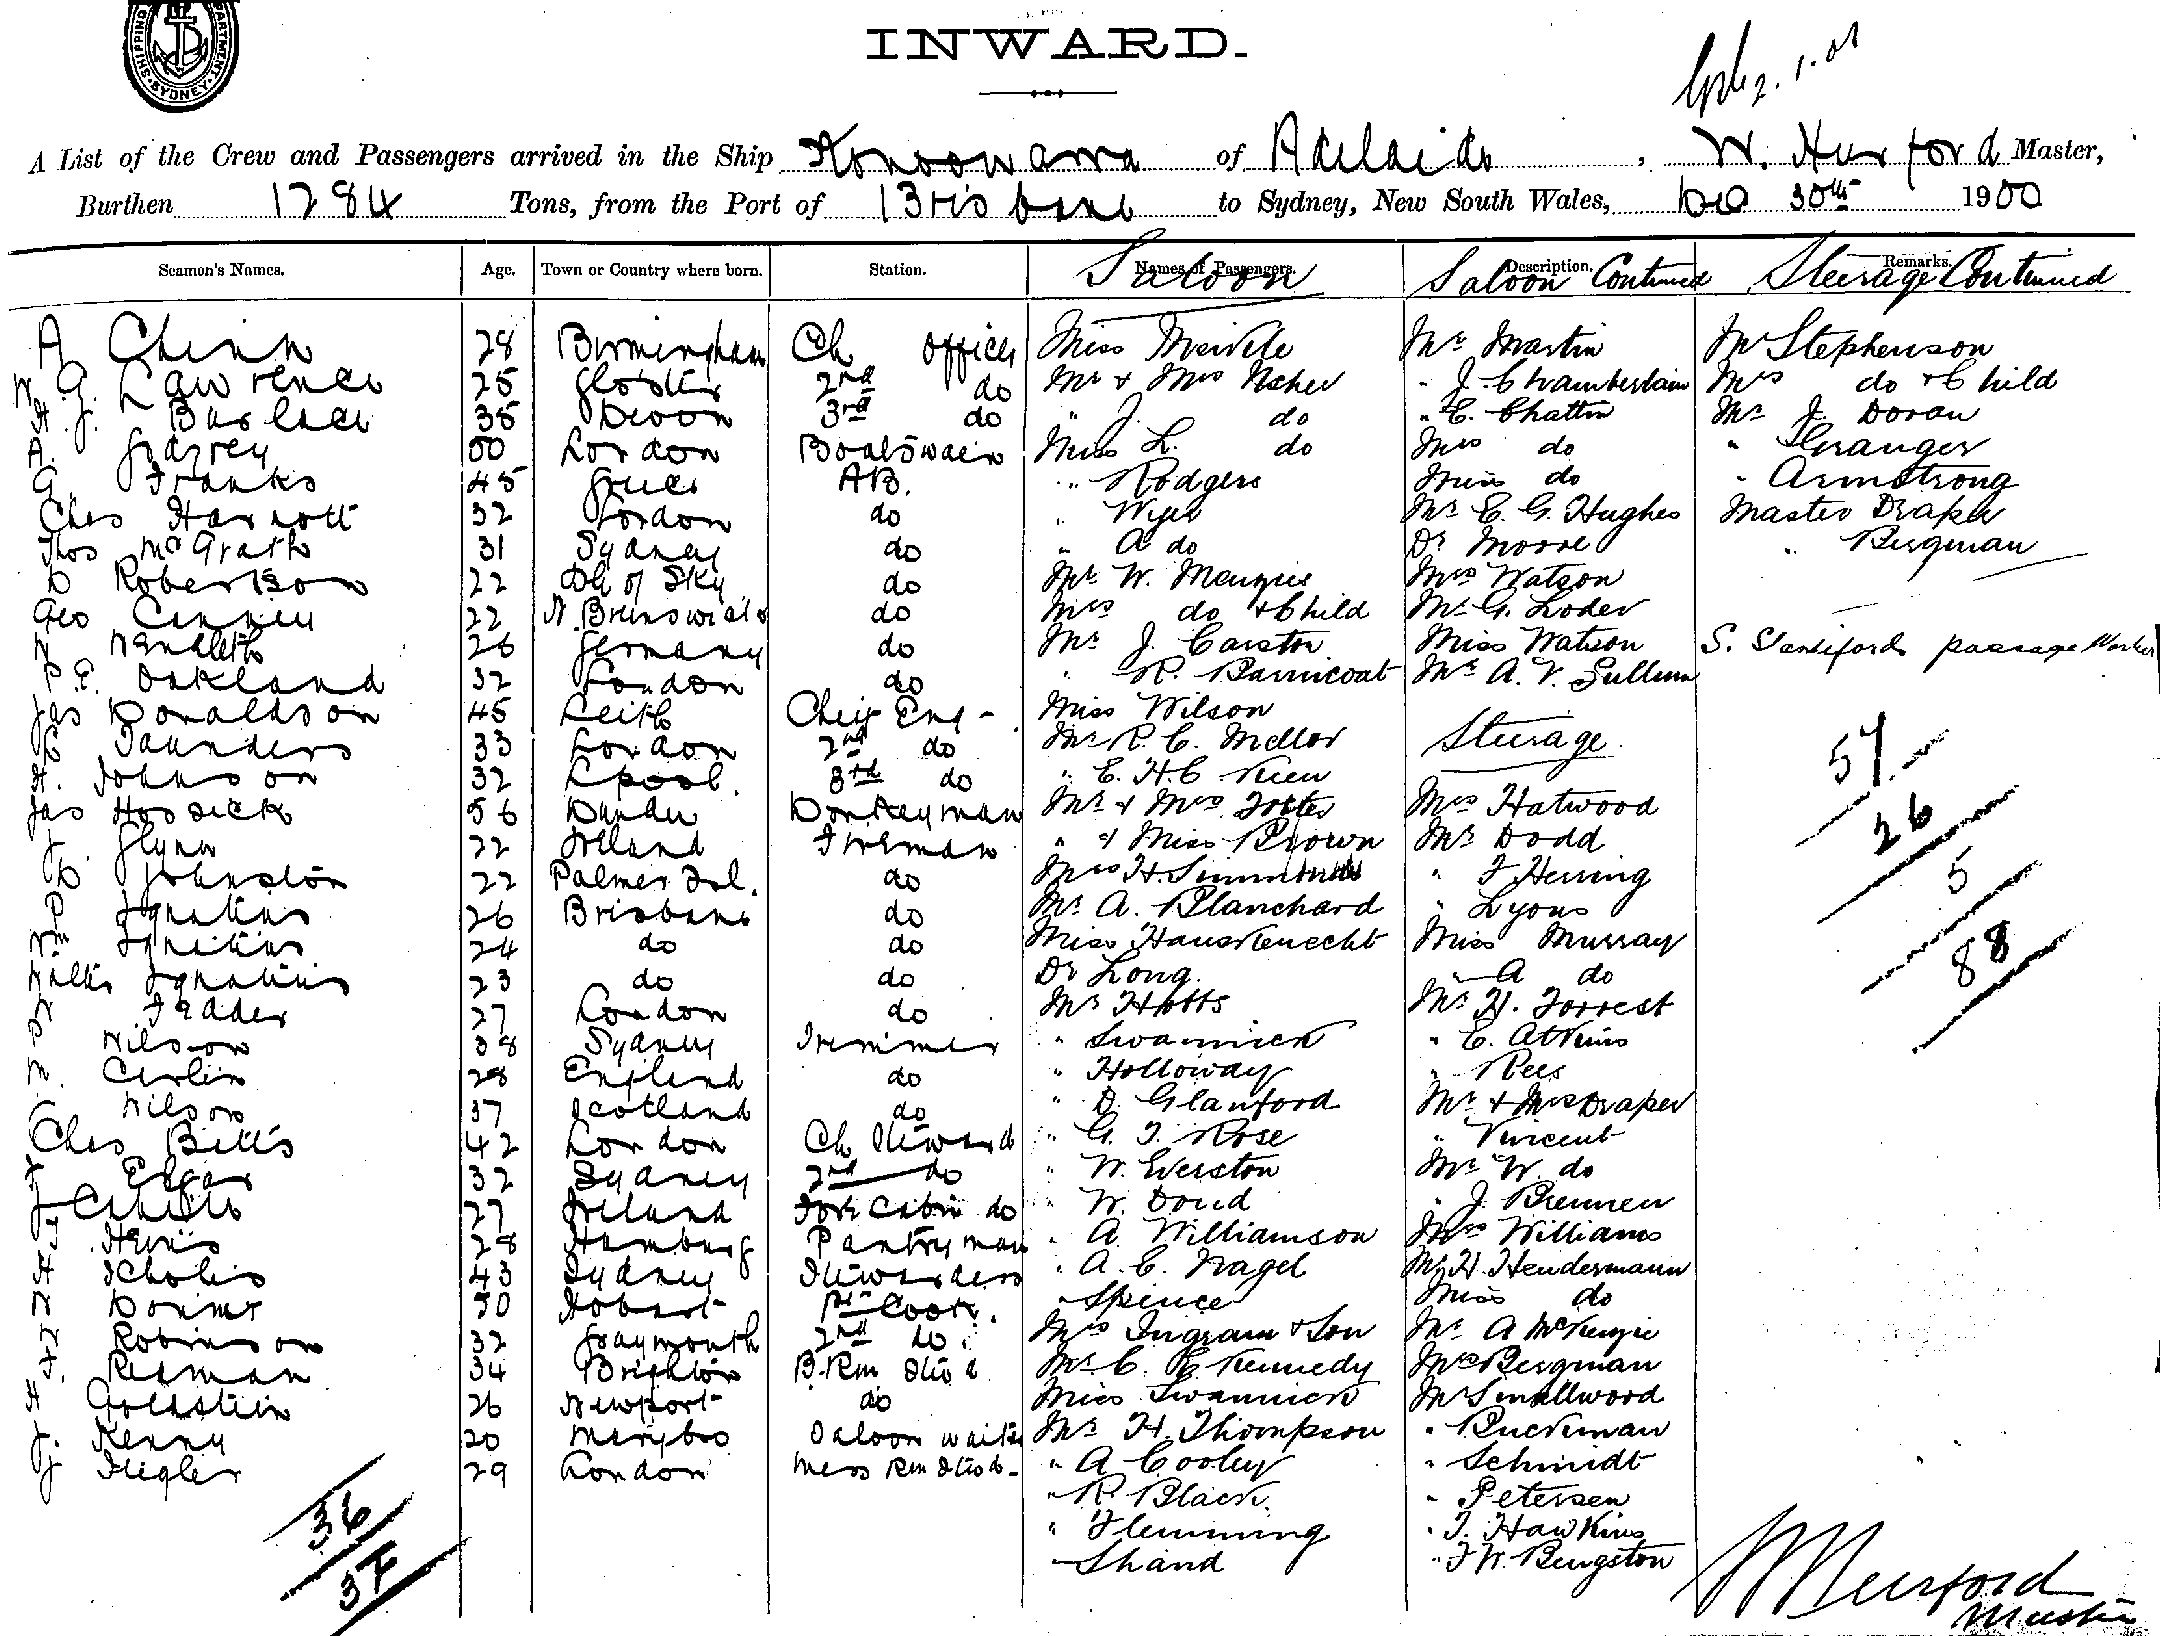 SHIPPING DEPARTMENT SYDNEY
INWARD.
A List of the Crew and Passengers arrived in the Ship Konoowarra of Adelaide, W. Hurford Master,
Burthen 1284 Tons, from the Port of Brisbane to Sydney, New South Wales, Dec 30th 1900
Seamen's Names. Age. Town or Country where born. Station. Names of Passengers. Description. Remarks.
Saloon Saloon Continued Steerage Continued
A Chinn 28 Birmingham Ch Officer Miss Mr Martin Mr Stephenson
W. G. Lawrence 25 Gloster 2nd do Mr & Mrs Usher " J. Chamberlain Mrs do & Child
H. J. 35 Devon 3rd do " J. do " C. Chattin Mr J Doran
A. Garrey 50 London Boatswain Miss L. do Mrs do " Granger
G. Franks 45 AB. " Rodgers Miss do " Armstrong
Chas Harnott 32 London do " Mr E. G. Hughes Master Draper
Thos McGrath 31 Sydney do " A do Dr Moore " Bergman
D Robertson 22 Isle of Sky do Mr W. Menzies Mrs Watson
Geo 22 N. Brunswick do Mrs do & Child Mr G. Loder
W 26 Germany do Mr J. Carston Miss Watson S. passage Worker
P. E. Oakland 32 London do " R. Barnicoat Mr A. V.
Jas Donaldson 45 Leith Chief Eng - Miss Wilson
Saunders 33 London 2nd do Mr R. C. Mellor Steerage.
H. Johnson 32 Lpool. 3rd do " E. H. C 57
Jas Hossick 56 Dundee Donkeyman Mr & Mrs Mrs Hatwood 26
J. Glynn 22 Ireland Fireman " & Miss Brown Mr Dodd
D Johnston 22 Palmer Isl. do Mrs H. Simmonds " F Herring 5
P Ignatius 26 Brisbane do Mr A. Blanchard " Lyons
Wm Ignatius 24 do do Miss Hausknecht Miss Murray 88
Walter Ignatius 23 do do Dr Long " A do
W 27 London do Mr Hobbs Mr H. Forrest
P Wilson 38 Sydney Trimmer " Swannick " E. Atkins
M. Carlin 28 England do " Holloway " Rees
Wilson 37 Scotland do " D. Glanford Mr & Mrs Draper
Chas Betts 42 London Ch Steward " G. T. Rose " Vincent
Edgar 32 Sydney 2nd do " W. Everston Mr W. do
J 27 Ireland Fore Cabin do " W. Doud " J. Brennen
28 Hamburg Pantryman " A. Williamson Mrs Williams
H Scholes 43 Sydney Stewardess " A. C. Nagel Mr H. Hendermann
W 50 Hobart 1st Cook. " Spence Miss do
W Robinson 32 Graymouth 2nd do. Mrs Ingram & Son Mr A McKenzie
F. Redman 34 Brighton B. Rm Stwd Mr C. Kennedy Mrs Bergman
H Goldstein 26 Newport do Miss Swannick Mr Smallwood
J. Kenny 20 Marybro Saloon waiter Mr H. Thompson " Buckman
J 29 London Mess Rm Stwd - " A Cooley " Schmidt
" R. Black. " Petersen
36 " Flemming " T. Hawkins
37 " Shand " F W. Bengston
W Hurford
Master